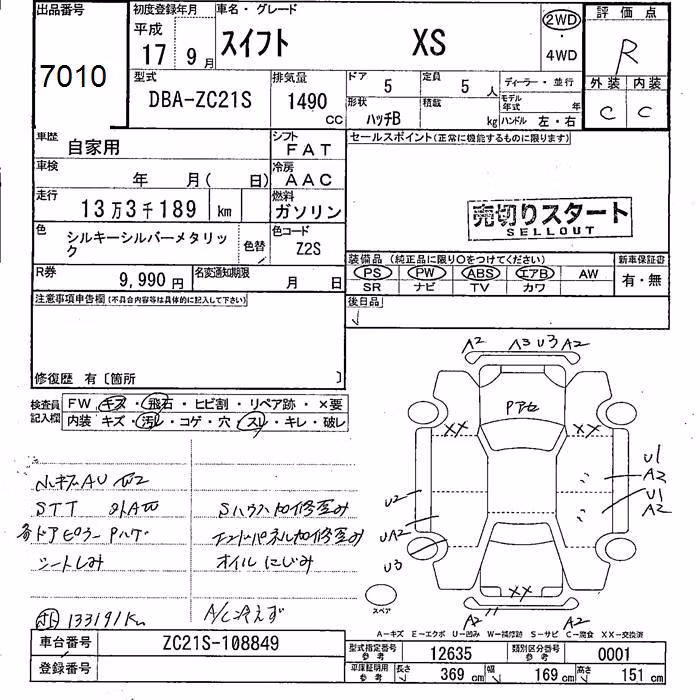 出品番号
7010
初度登録年月
平成
17 9月
車名・グレード
スイフト XS
2WD
4WD
評価点
R
外装 内装
C C
型式
DBA-ZC21S
排気量
1490
CC
ドア 5
定員 5人
形状 ハッチB
積載 kg
ディーラー・並行
モデル年式 年
ハンドル 左・右
車歴 自家用
シフト FAT
車検 年 月( 日)
冷房 AAC
走行 13万3千189 km
燃料 ガソリン
色 シルキーシルバーメタリック
色替
色コード Z2S
R券 9,990円
名変通知期限 月 日
セールスポイント(正常に機能するものに限ります)
売切りスタート
SELLOUT
装備品(純正品に限り○をつけてください)
新車保証書
PS PW ABS エアB AW
SR ナビ TV カワ
有・無
後日品
注意事項申告欄(不具合内容等は具体的に記入して下さい)
修復歴 有〔箇所 〕
検査員記入欄
FW キズ・飛石・ヒビ割・リペア跡・×要
内装 キズ・汚レ・コゲ・穴・スレ・キレ・破レ
STT
シートしみ
オイルにじみ
A/C冷えず
133191Km
A2 A3 U3 A2
Pアセ
XX XX
U1
A2
U1
A2
U2
UA2
U3
XX
A2 A2
スペア
A-キズ E-エクボ U-凹み W-補修跡 S-サビ C-腐食 XX-交換済
車台番号 ZC21S-108849
登録番号
型式指定番号参考 12635
類別区分番号参考 0001
車庫証明用参考 長さ 369cm 幅 169cm 高さ 151cm